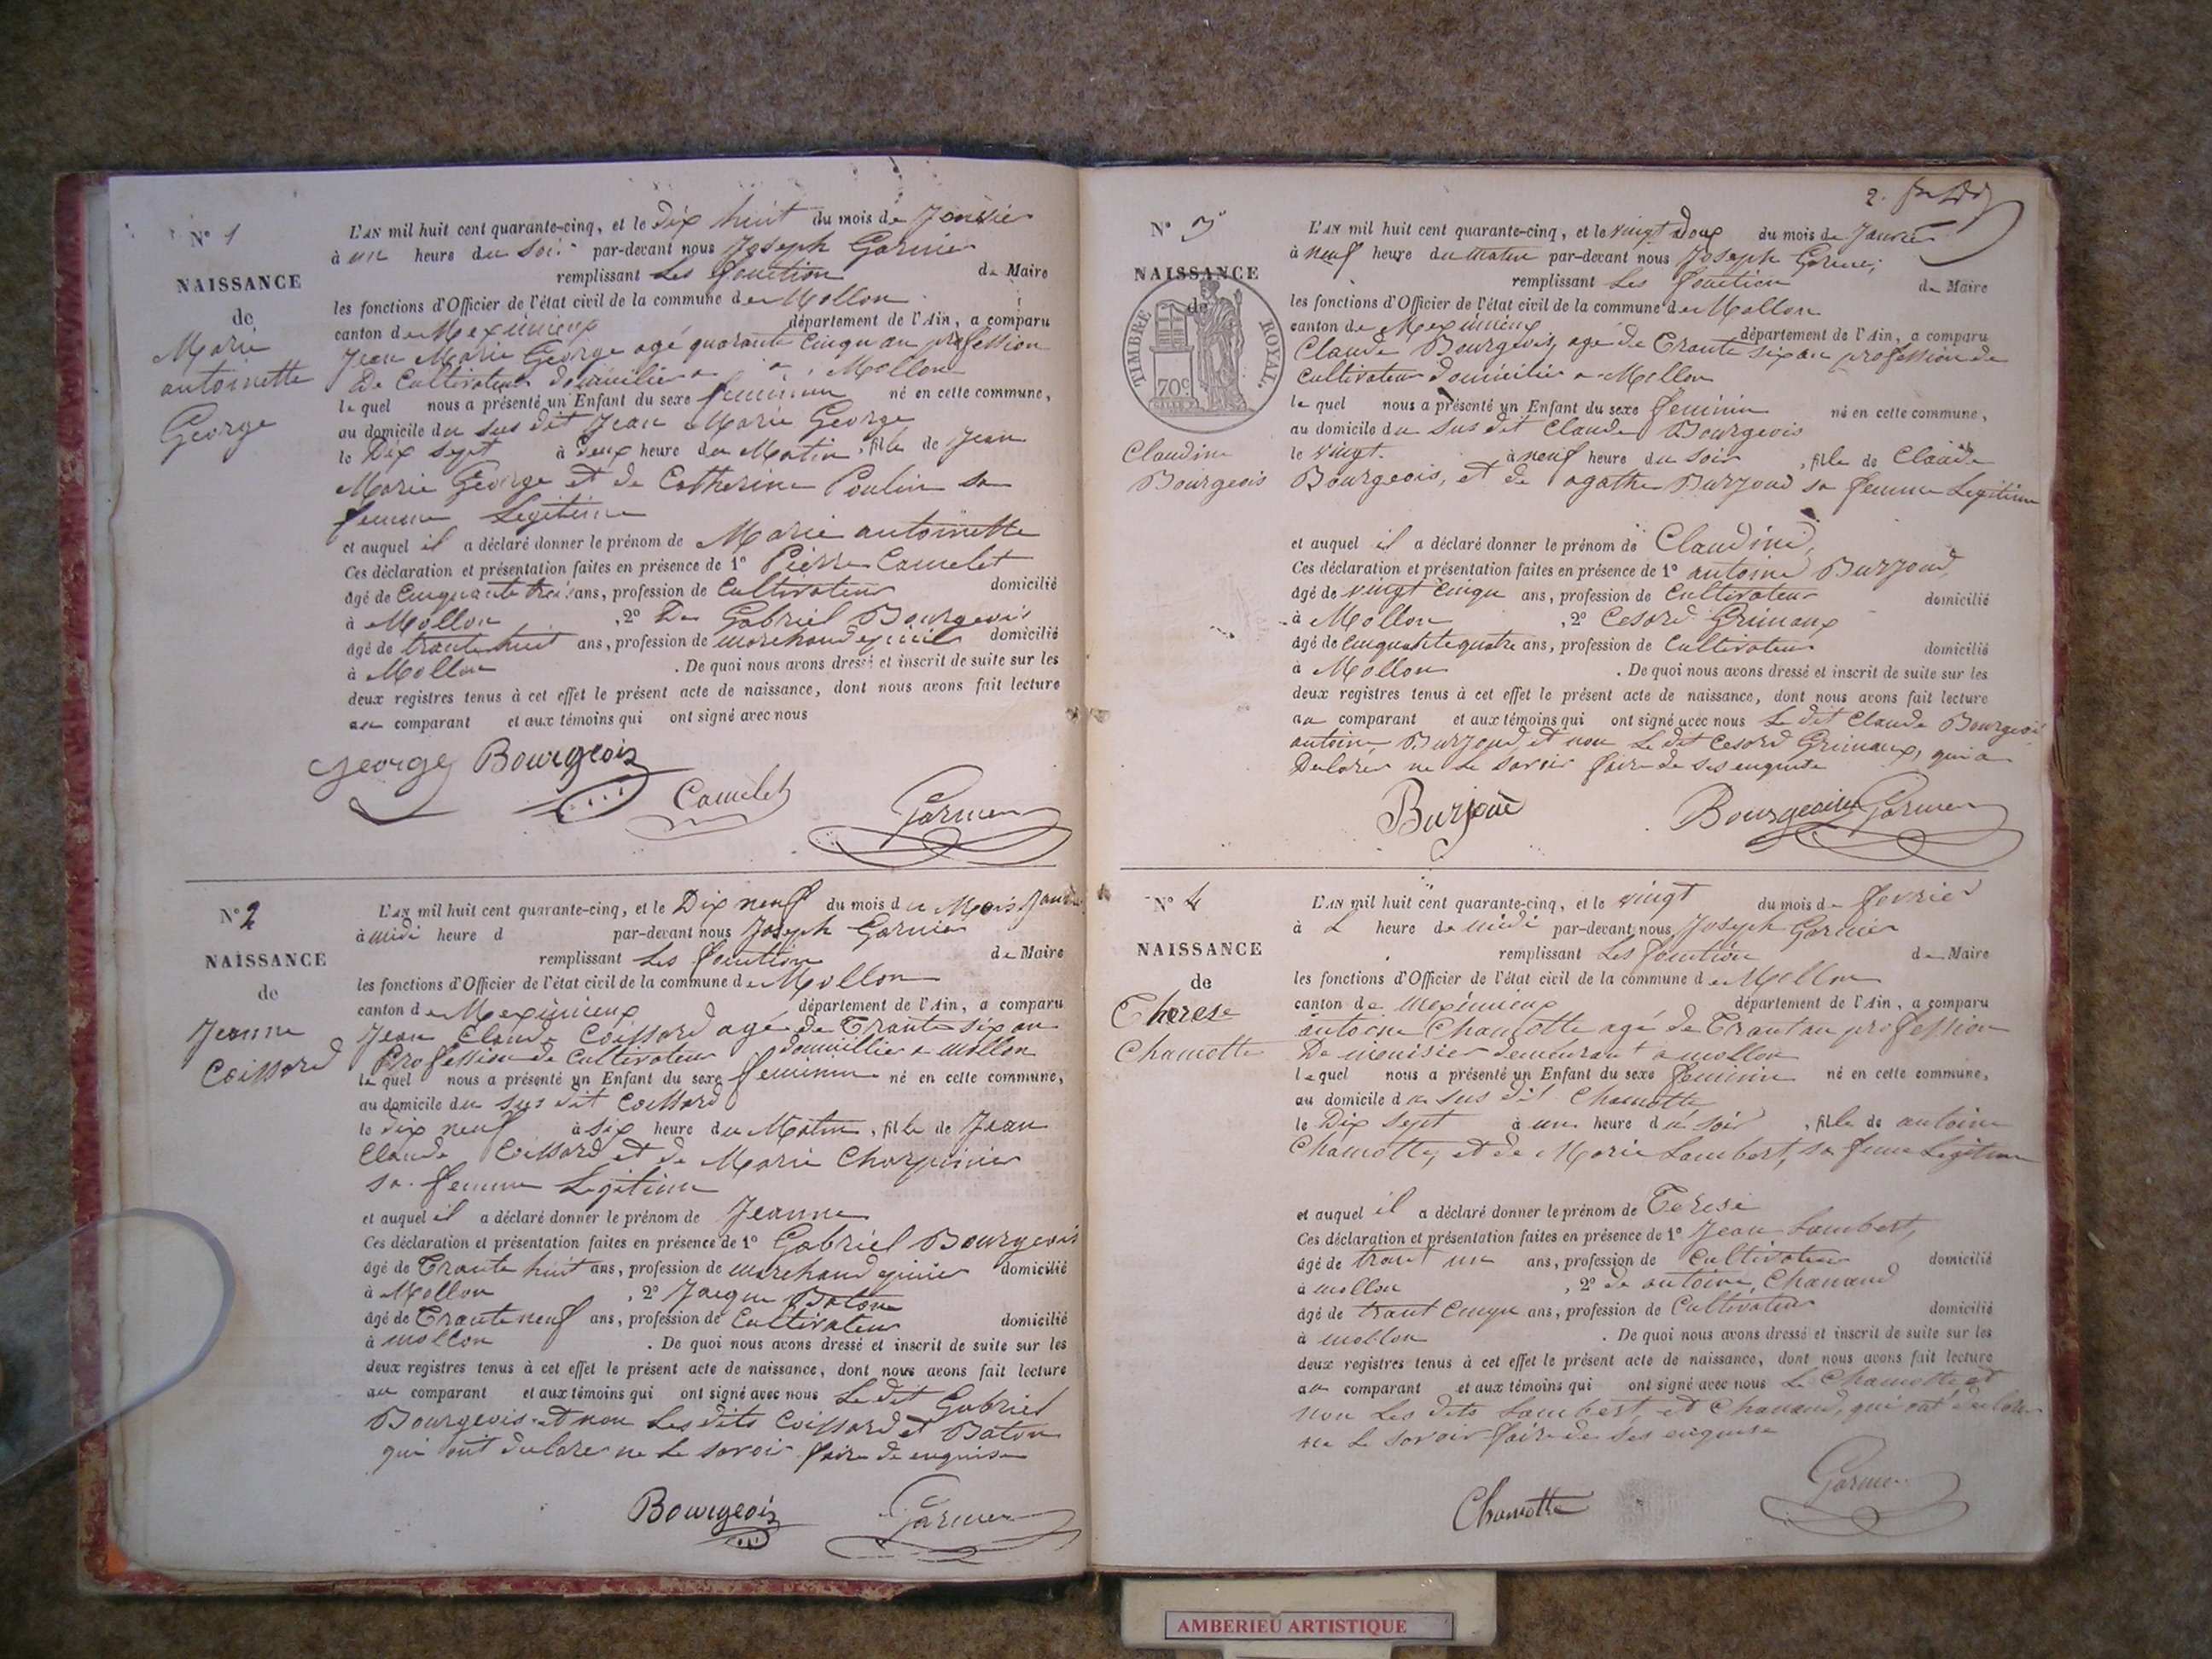 N° 1
NAISSANCE
de
Marie
antoinette
George
L'AN mil huit cent quarante-cinq, et le Dix huit du mois de Janvier
à un heure du soir par-devant nous Joseph Garnier
remplissant Les fonction de Maire
les fonctions d'Officier de l'état civil de la commune de Mollon
canton de Meximieux département de l'Ain, a comparu
Jean Marie George agé quarante Cinq an profession
De Cultivateur domicilier a Mollon
lequel nous a présenté un Enfant du sexe feminin né en cette commune,
au domicile du sus dit Jean Marie George
le Dix sept à deux heure du Matin, fille de Jean
Marie George et de Catherine Poulin sa
femme Legitime
et auquel il a déclaré donner le prénom de Marie antoinette
Ces déclaration et présentation faites en présence de 1° Pierre Camelet
âgé de Cinquante trois ans, profession de Cultivateur domicilié
à Mollon, 2° De Gabriel Bourgeois
âgé de trante huit ans, profession de marchand epicié domicilié
à Mollon. De quoi nous avons dressé et inscrit de suite sur les
deux registres tenus à cet effet le présent acte de naissance, dont nous avons fait lecture
au comparant et aux témoins qui ont signé avec nous
George Bourgeois
Camelet Garnier
N° 2
NAISSANCE
de
Jeanne
Coissard
L'AN mil huit cent quarante-cinq, et le Dix neuf du mois du Mois Janvier
à midi heure d par-devant nous Joseph Garnier
remplissant Les fonction de Maire
les fonctions d'Officier de l'état civil de la commune de Mollon
canton de Meximieux département de l'Ain, a comparu
Jean Claude Coissard agé de Trante six an
Profession de Cultivateur domicillier a mollon
lequel nous a présenté un Enfant du sexe feminin né en cette commune,
au domicile du sus dit Coissard
le dix neuf à six heure du Matin, fille de Jean
Claude Coissard et de Marie Charpinier
sa femme Legitime
et auquel il a déclaré donner le prénom de Jeanne
Ces déclaration et présentation faites en présence de 1° Gabriel Bourgeois
âgé de Trante huit ans, profession de marchand epicier domicilié
à Mollon, 2° Jacque Baton
âgé de Trante neuf ans, profession de Cultivateur domicilié
à mollon. De quoi nous avons dressé et inscrit de suite sur les
deux registres tenus à cet effet le présent acte de naissance, dont nous avons fait lecture
au comparant et aux témoins qui ont signé avec nous Le dit Gabriel
Bourgeois et non Les dits Coissard et Baton
qui ont declare ne Le savoir faire de enquis
Bourgeois Garnier
2.
N° 3
NAISSANCE
de
TIMBRE ROYAL
70c
Claudine
Bourgeois
L'AN mil huit cent quarante-cinq, et le vingt deux du mois de Janvier
à neuf heure du matin par-devant nous Joseph Garnier
remplissant Les fonction de Maire
les fonctions d'Officier de l'état civil de la commune de Mollon
canton de Meximieux département de l'Ain, a comparu
Claude Bourgeois, agé de Trante six an profession de
Cultivateur domicilier a Mollon
lequel nous a présenté un Enfant du sexe feminin né en cette commune,
au domicile du sus dit Claude Bourgeois
le vingt. à neuf heure du soir, fille de Claude
Bourgeois, et de agathe Burjoud sa femme Legitime
et auquel il a déclaré donner le prénom de Claudine,
Ces déclaration et présentation faites en présence de 1° antoine Burjoud,
âgé de vingt cinqu ans, profession de Cultivateur domicilié
à Mollon, 2° Cesard Grimaux
âgé de Cinquante quatre ans, profession de Cultivateur domicilié
à Mollon. De quoi nous avons dressé et inscrit de suite sur les
deux registres tenus à cet effet le présent acte de naissance, dont nous avons fait lecture
au comparant et aux témoins qui ont signé avec nous Le dit Claude Bourgeois
antoine Burjoud et non Le dit Cesard Grimaux, qui a
Declarer ne Le savoir faire de ses enquite
Burjoue Bourgeois Garnier
N° 4
NAISSANCE
de
Therese
Chamotte
L'AN mil huit cent quarante-cinq, et le vingt du mois de fevrier
à L heure de midi par-devant nous Joseph Garnier
remplissant Les fonction de Maire
les fonctions d'Officier de l'état civil de la commune de Mollon
canton de meximieux département de l'Ain, a comparu
antoine Chamotte agé de Trant an profession
De menisier demeurant a mollon
lequel nous a présenté un Enfant du sexe feminin né en cette commune,
au domicile du sus dit Chamotte
le Dix sept à une heure du soir, fille de antoine
Chamotte, et de Marie Lambert, sa femme Legitime
et auquel il a déclaré donner le prénom de Terese
Ces déclaration et présentation faites en présence de 1° Jean Lambert,
âgé de trant un ans, profession de Cultivateur domicilié
à mollon, 2° de antoine Chanand
âgé de trant cinqu ans, profession de Cultivateur domicilié
à mollon. De quoi nous avons dressé et inscrit de suite sur les
deux registres tenus à cet effet le présent acte de naissance, dont nous avons fait lecture
au comparant et aux témoins qui ont signé avec nous Le Chamotte et
non Les dits Lambert, et Chanand, qui ont declare
ne Le savoir faire de ses enquise
Chamotte Garnier
AMBERIEU ARTISTIQUE